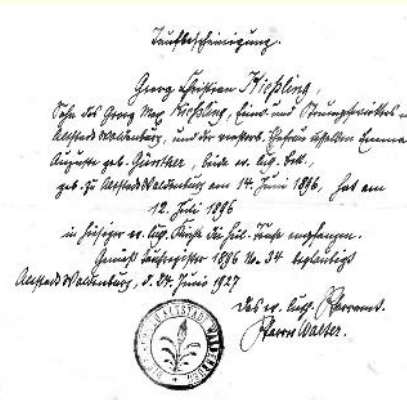 Taufbescheinigung.
Georg Christian Kießling,
Sohn des Georg Max Kießling, Einw. und Strumpfwirkers in
Altstadt Waldenburg, und der verstorb. Ehefrau desselben Emma
Auguste geb. Günther, beide ev. luth. Bek.,
geb. zu Altstadt Waldenburg am 14. Juni 1896, hat am
12. Juli 1896
in hiesiger ev. luth. Kirche die heil. Taufe empfangen.
Gemäß Taufregister 1896 No. 34 beglaubigt
Altstadt Waldenburg, d. Juni 1927
Das ev. luth. Pfarramt.
Pfarrer Walter.
ALTSTADT WALDENBURG